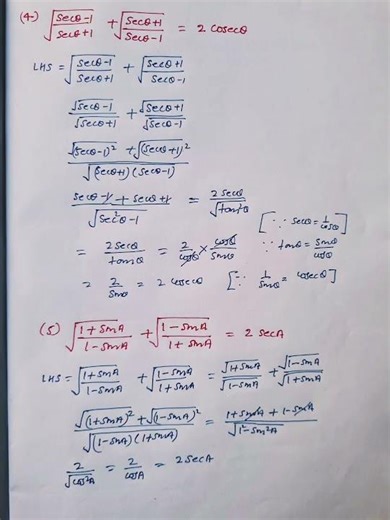 (4) √((secθ-1)/(secθ+1)) + √((secθ+1)/(secθ-1)) = 2 cosecθ
LHS = √((secθ-1)/(secθ+1)) + √((secθ+1)/(secθ-1))
√(secθ-1)/√(secθ+1) + √(secθ+1)/√(secθ-1)
(√(secθ-1)² + √(secθ+1)²)/√((secθ+1)(secθ-1))
(secθ-1+secθ+1)/√(sec²θ-1) = 2secθ/√(tan²θ)
[∵ secθ = 1/cosθ]
= 2secθ/tanθ = 2/cosθ × cosθ/sinθ ∵ tanθ = sinθ/cosθ
= 2/sinθ = 2 cosecθ [∵ 1/sinθ = cosecθ]
(5) √((1+sinA)/(1-sinA)) + √((1-sinA)/(1+sinA)) = 2 secA
LHS = √((1+sinA)/(1-sinA)) + √((1-sinA)/(1+sinA)) = √(1+sinA)/√(1-sinA) + √(1-sinA)/√(1+sinA)
(√(1+sinA)² + √(1-sinA)²)/√((1-sinA)(1+sinA)) = (1+sinA+1-sinA)/√(1²-sin²A)
2/√(cos²A) = 2/cosA = 2secA